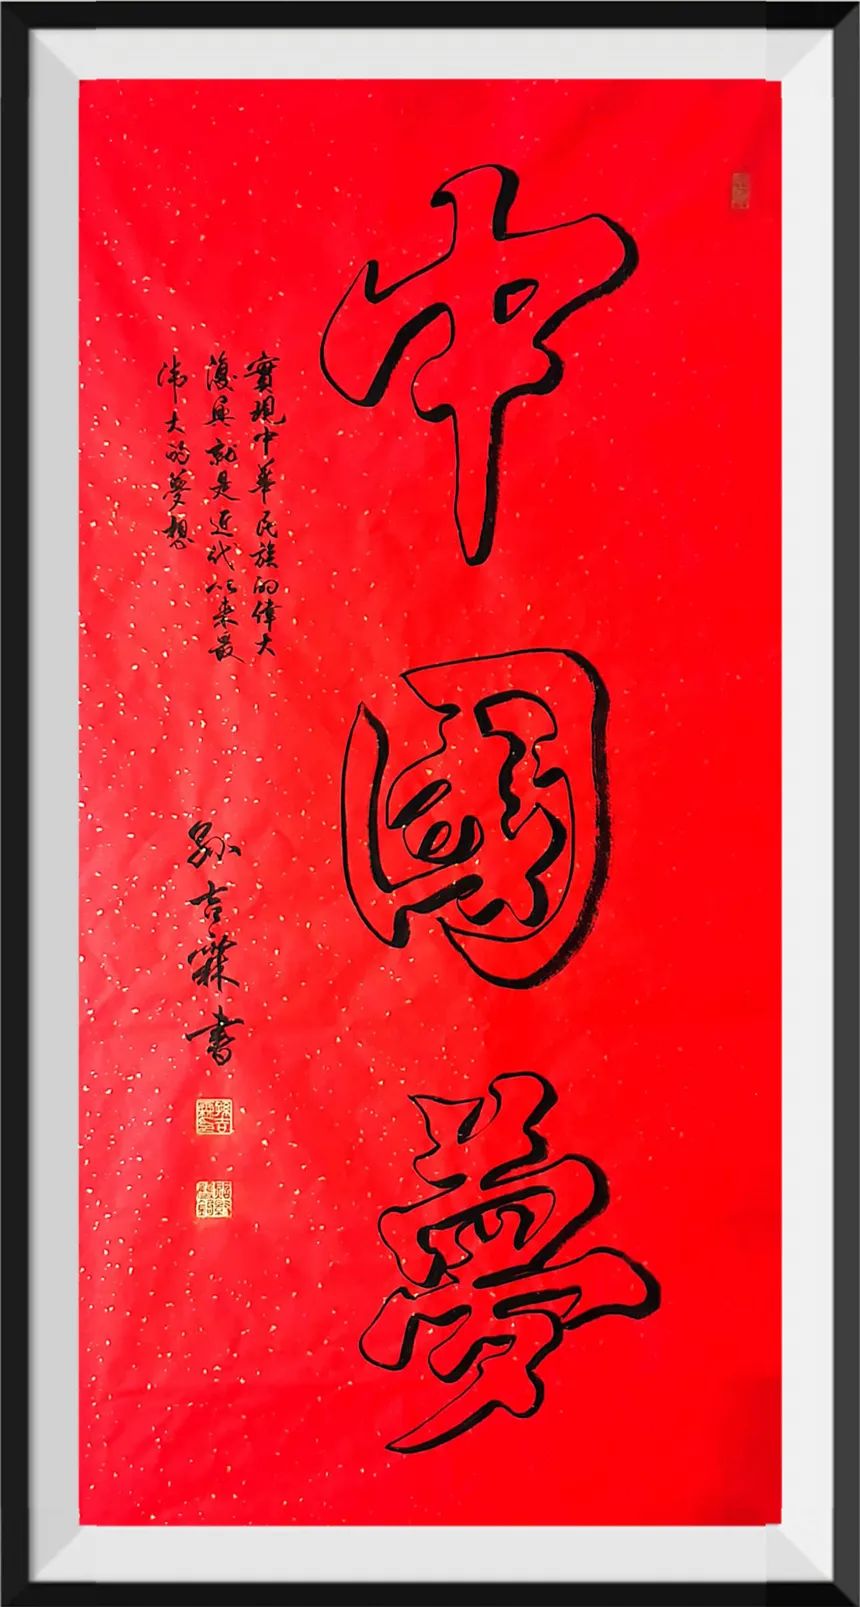 中國夢
實現中華民族的偉大
復興就是近代以来最
伟大的夢想
孙吉霖書